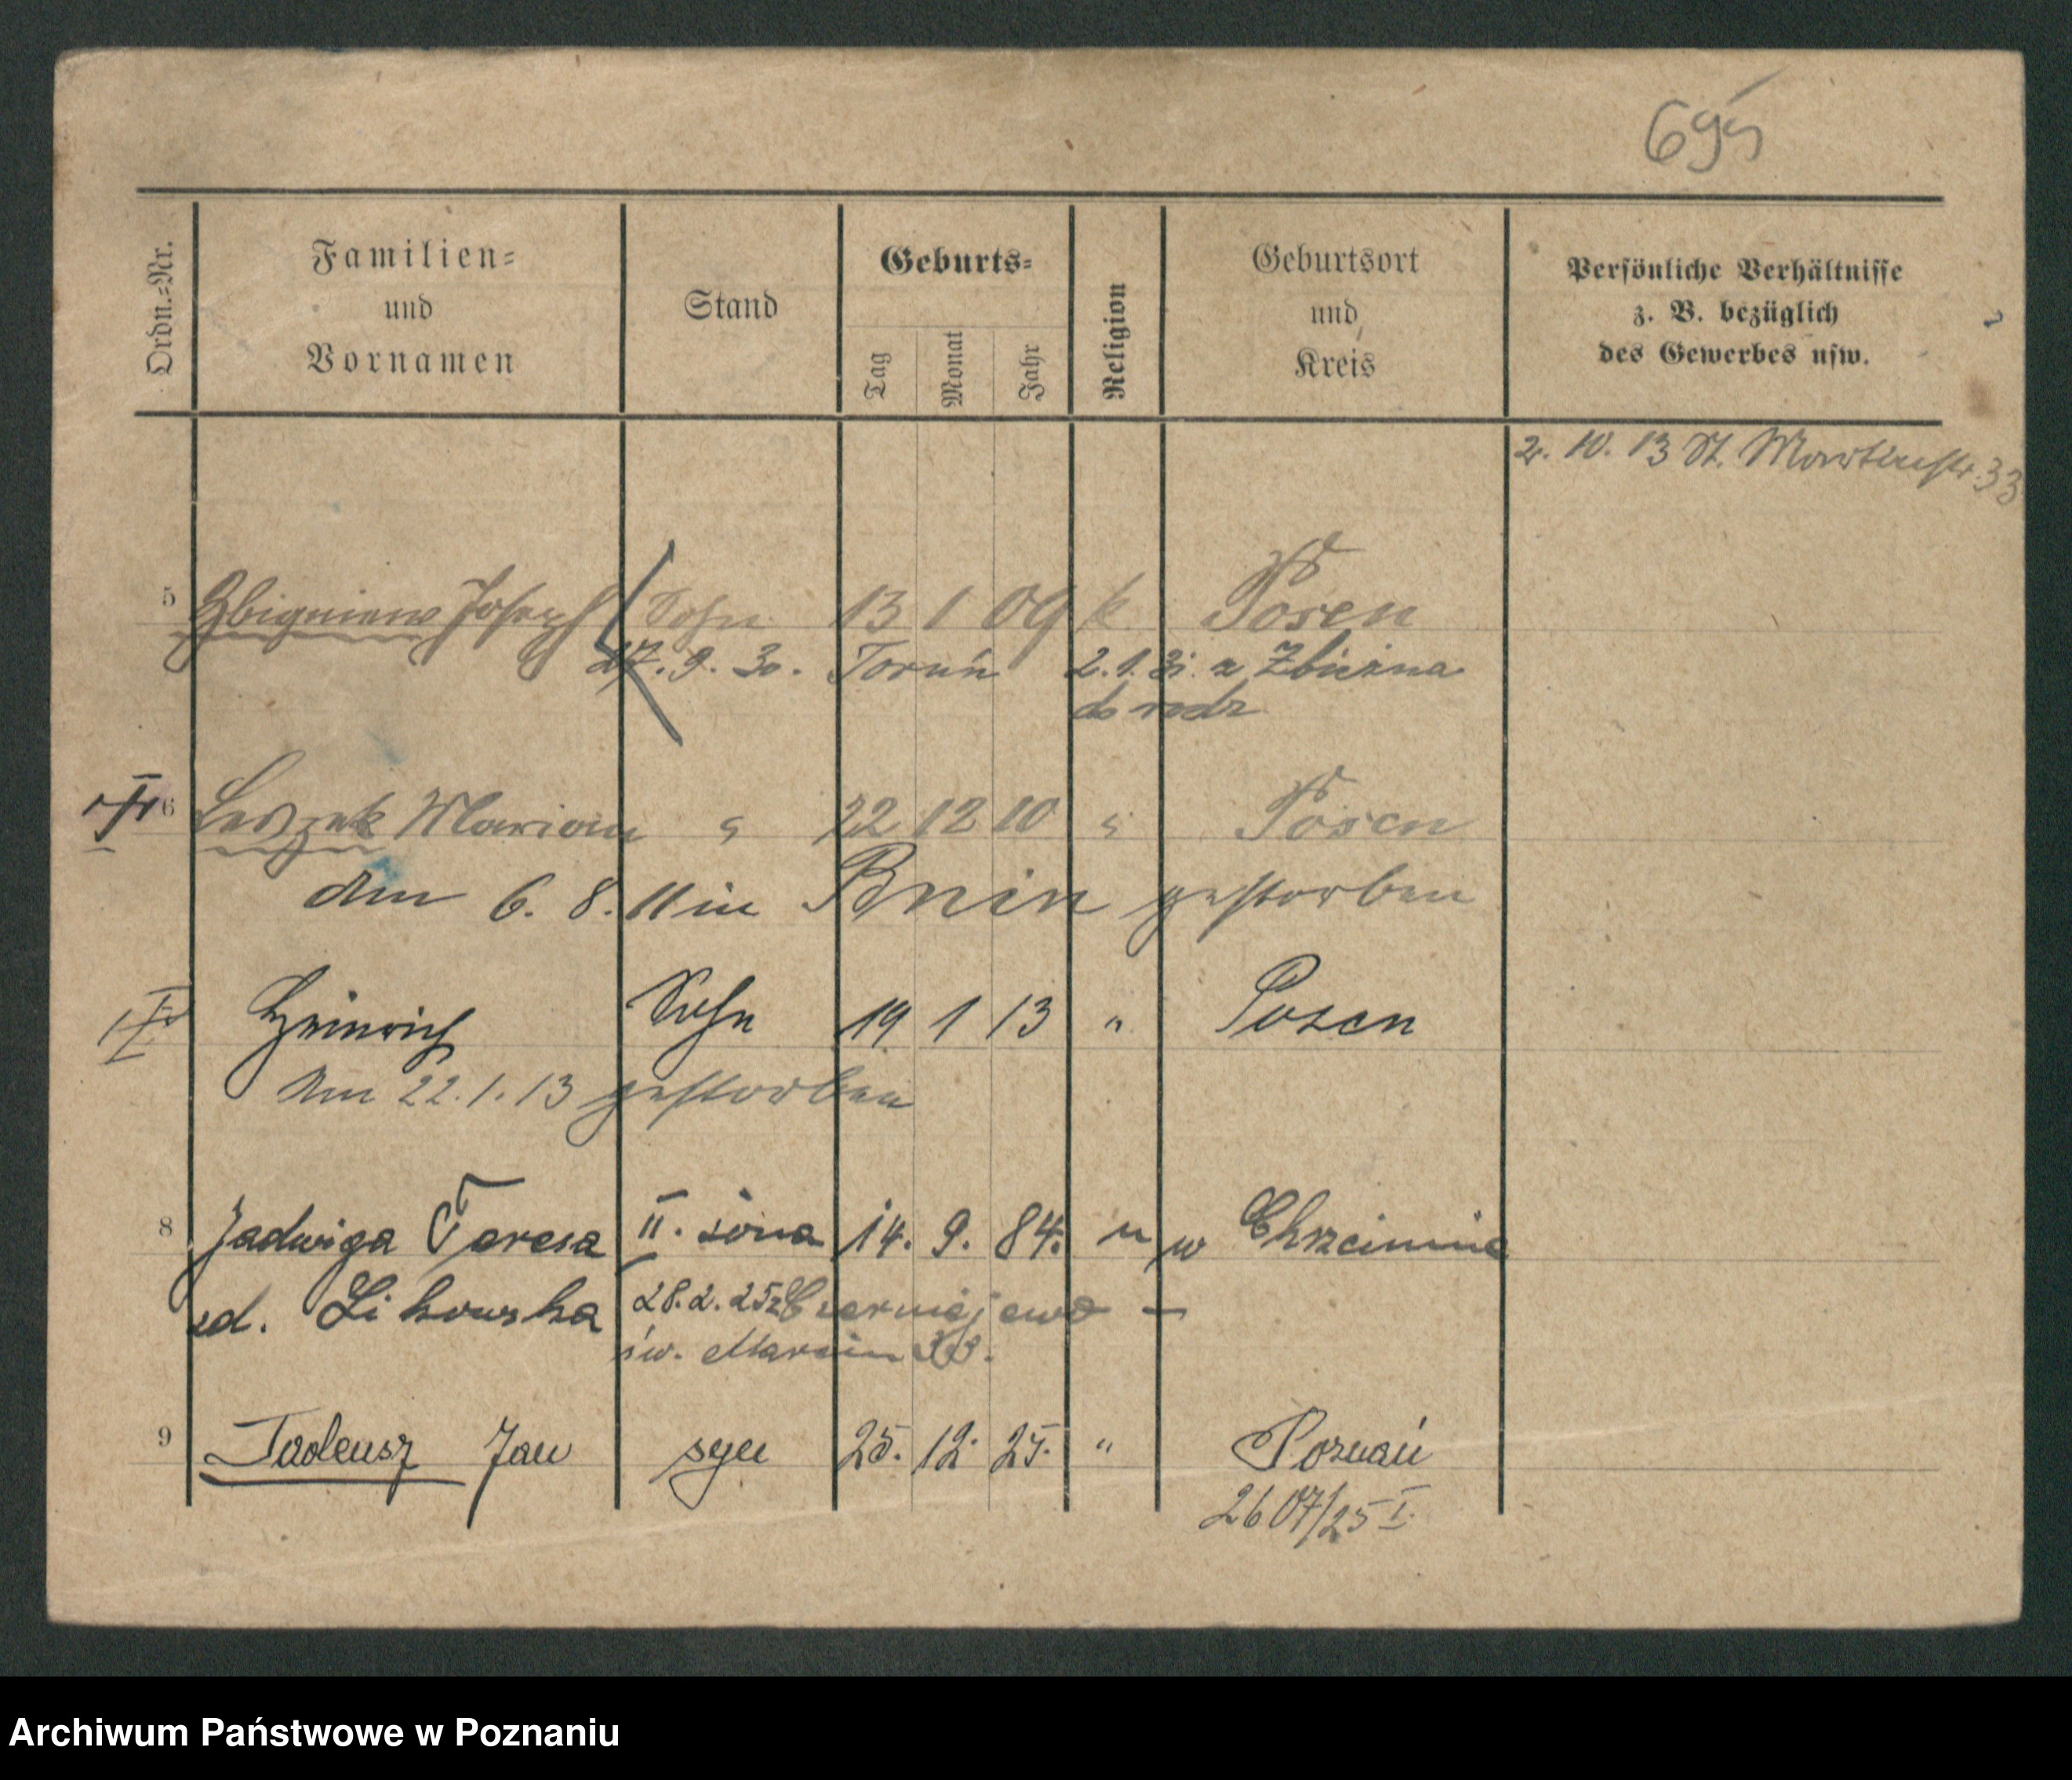 695
Ordn.=Nr.
Familien=
und
Vornamen
Stand
Geburts=
Tag
Monat
Jahr
Religion
Geburtsort
und
Kreis
Persönliche Verhältnisse
z. B. bezüglich
des Gewerbes usw.
2. 10. 13 St. Martinstr. 33
5 Zbigniew Joseph Sohn 13 1 09 k Posen
27. 9. 30. Toruń 2. 1. 31. z Zbiczna
do rodz
6 Leszek Marian " 22 12 10 " Posen
Am 6. 8. 11 in Bnin gestorben
Heinrich Sohn 19 1 13 " Posen
Am 22. 1. 13 gestorben
8 Jadwiga Teresa II. żona 14. 9. 84. " w
zd. Likowska 28. 2. 25 z Czerniejewo —
św. Marcin 33.
9 Tadeusz Jan syn 25. 12. 25. " Poznań
2607/25 I.
Archiwum Państwowe w Poznaniu